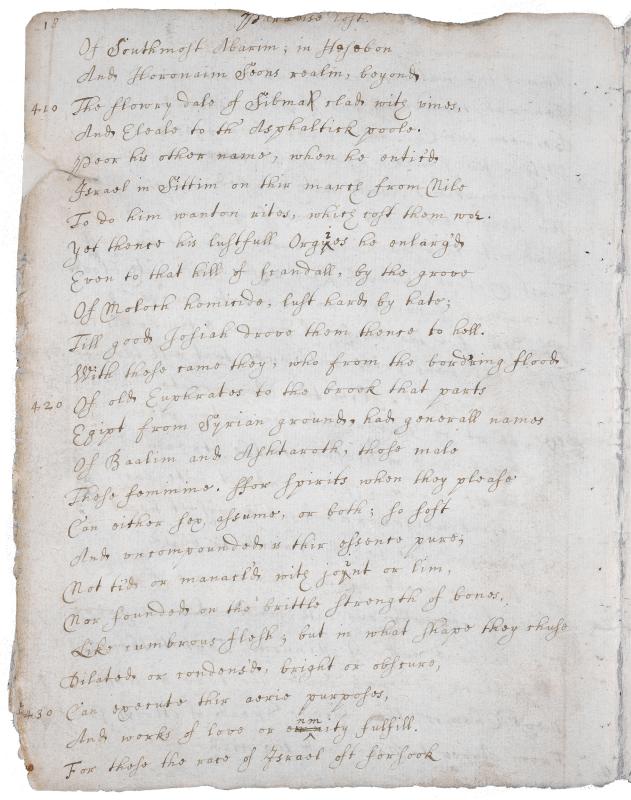 18
Paradise lost.
Of Southmost Abarim; in Hesebon
And Horonaim Seons realm, beyond
410 The flowry dale of Sibmah clad with vines,
And Eleale to th' Asphaltick poole.
Peor his other name, when he entic'd
Israel in Sittim on thir march from Nile
To do him wanton rites, which cost them woe.
Yet thence his lustfull Orgies he enlarg'd
Even to that hill of scandall, by the grove
Of Moloch homicide, lust hard by hate;
Till good Josiah drove them thence to hell.
With these came they, who from the bord'ring flood
420 Of old Euphrates to the brook that parts
Egipt from Syrian ground, had generall names
Of Baalim and Ashtaroth, those male
These feminine. Ffor spirits when they please
Can either sex, assume, or both; so soft
And uncompounded is thir essence pure;
Not ti'd or manacl'd with joynt or lim,
Nor founded on the brittle strength of bones,
Like cumbrous flesh; but in what shape they chuse
Dilated or condens'd, bright or obscure,
430 Can execute thir aerie purposes,
And works of love or enmity fulfill.
For these the race of Israel oft forsook